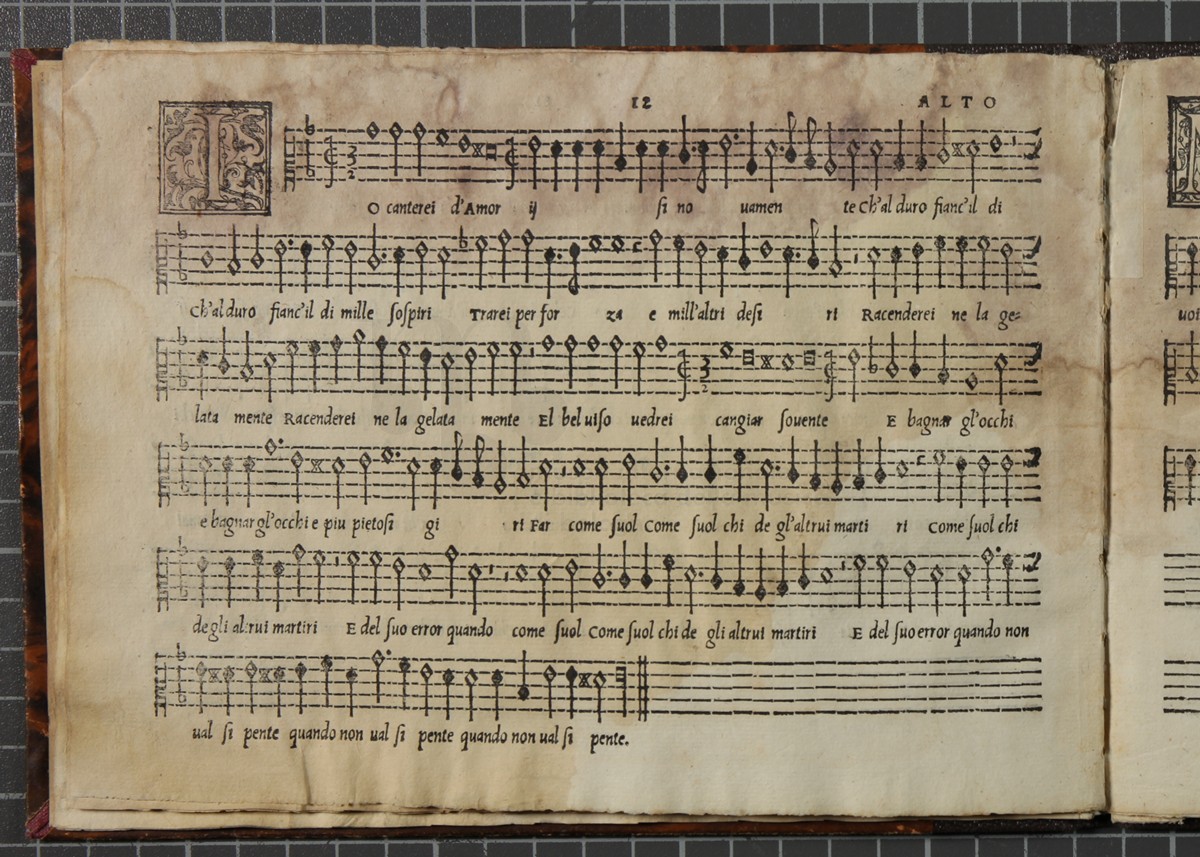 12 ALTO
I O canterei d'Amor ij si no uamen te Ch'al duro fianc'il di
Ch'al duro fianc'il di mille sospiri Trarei per for za e mill'altri desi ri Racenderei ne la ge=
lata mente Racenderei ne la gelata mente El bel uiso uedrei cangiar souente E bagnar gl'occhi
e bagnar gl'occhi e piu pietosi gi ri Far come suol Come suol chi de gl'altrui marti ri Come suol chi
de gli altrui martiri E del suo error quando come suol Come suol chi de gli altrui martiri E del suo error quando non
ual si pente quando non ual si pente quando non ual si pente.
uoi